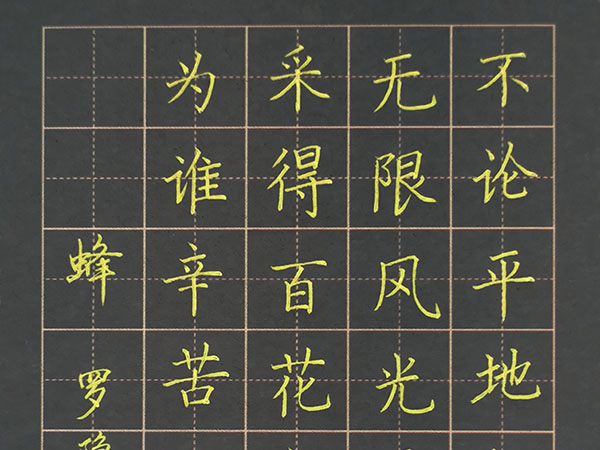 不论平地
无限风光
采得百花
为谁辛苦
蜂 罗